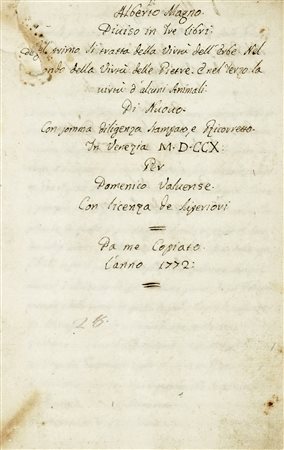 Alberto Magno
Diviso in tre libri
Nel primo si tratta della Virtù dell'Erbe Nel
secondo della Virtù delle Pietre. E nel terzo la
virtù d'alcuni Animali.
Di Nuovo
Con somma diligenza stampato, e Ricorretto.
In Venezia M.D.CCX.
Per
Domenico Valuense.
Con licenza de Superiori
Da me Copiato.
L'anno 1772:
28.